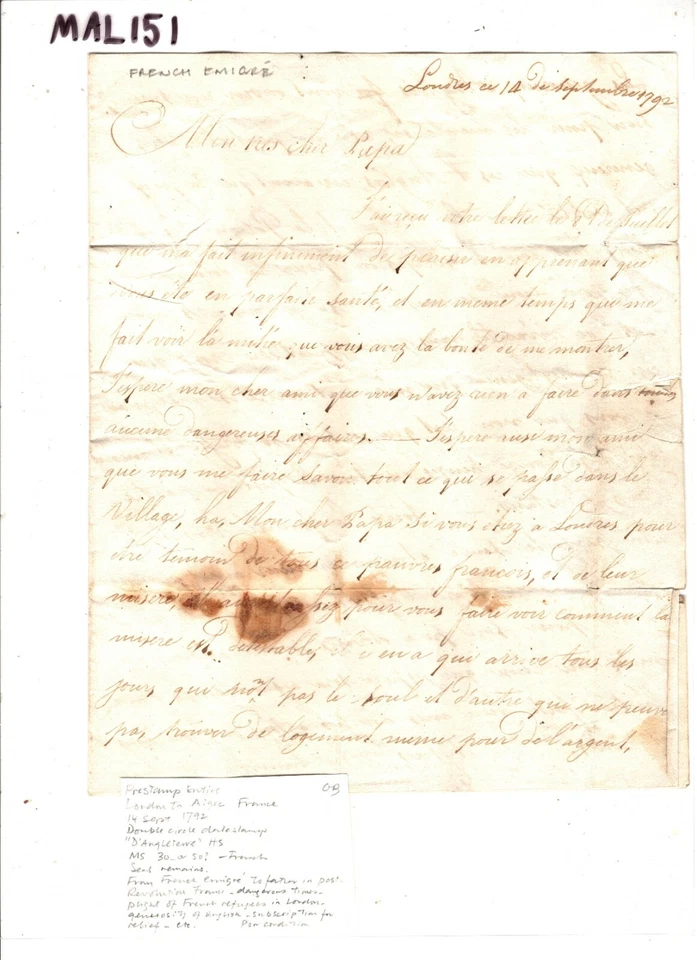 MAL151
FRENCH EMIGRÉ
Londres ce 14 de Septembre 1792
Mon tres cher Papa
J'ai reçu votre lettre le de Juillet
que m'a fait infiniment de plaisir en apprenant que
vous ete en parfaite santé, et en meme temps que me
fait voir la mitié que vous avez la bonté de me montrer,
J'espere mon cher ami que vous n'avez rien a faire dans
aucune dangereuses affaires. — J'espere ausi mon ami
que vous me faire savoir tout ce qui se passe dans le
Village, ha, Mon cher Papa si vous etiez a Londres pour
etre temoin de tous ce pauvres francois, et de leur
misere, assez pour vous faire voir comment la
misere est detestable, il i en a qui arrive tous les
jours que n'ont pas le soul et d'autre que ne peuve
pas trouver de logement meme pour de l'argent,
Prestamp Entire OB
London to France
14 Sept 1792
Double circle datestamp
"D'Angleterre" HS
MS 30 or 50? – French
Seal remains.
From French Emigré to father in post-
Revolution France – dangerous times –
plight of French refugees in London.
generosity of English – subscription for
relief – etc. Poor condition